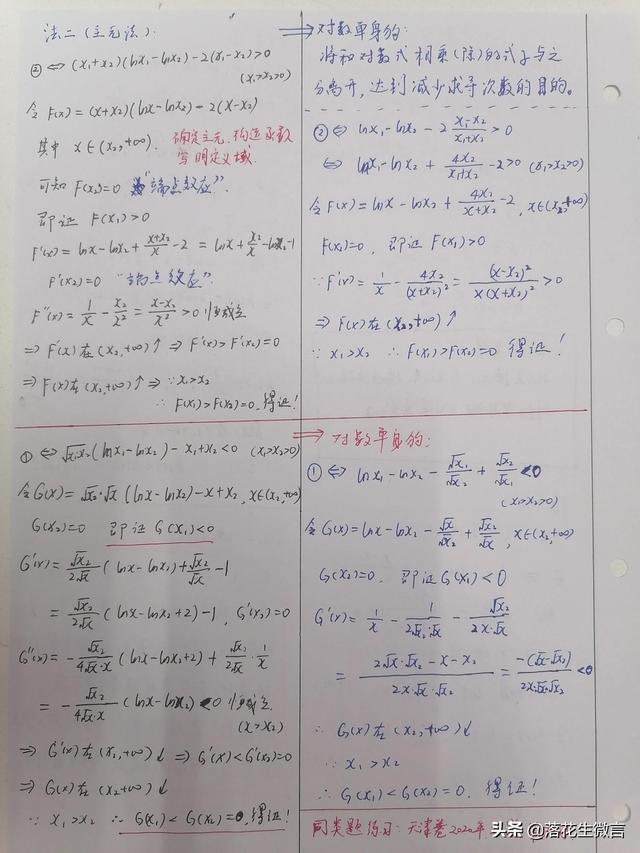 法二(主元法):
② ⇔ (x₁+x₂)(lnx₁-lnx₂)-2(x₁-x₂)>0
(x₁>x₂>0)
令 F(x)=(x+x₂)(lnx-lnx₂)-2(x-x₂)
其中 x∈(x₂,+∞). 确定主元、构造函数
写明定义域.
可知 F(x₂)=0 "端点效应".
即证 F(x₁)>0
F'(x)=lnx-lnx₂+\frac{x+x₂}{x}-2=lnx+\frac{x₂}{x}-lnx₂-1
F'(x₂)=0 "端点效应".
F''(x)=\frac{1}{x}-\frac{x₂}{x²}=\frac{x-x₂}{x²}>0 恒成立
⇒ F'(x)在(x₂,+∞)↑ ⇒ F'(x)>F'(x₂)=0
⇒ F(x)在(x₂,+∞)↑ ⇒ ∵x₁>x₂
∴ F(x₁)>F(x₂)=0.得证!
⇒ 对数单身狗:
将和对数式相乘(除)的式子与之
分离开,达到减少求导次数的目的。
② ⇔ lnx₁-lnx₂-2\frac{x₁-x₂}{x₁+x₂}>0
⇔ lnx₁-lnx₂+\frac{4x₂}{x₁+x₂}-2>0 (x₁>x₂>0)
令F(x)=lnx-lnx₂+\frac{4x₂}{x+x₂}-2, x∈(x₂,+∞)
F(x₂)=0, 即证 F(x₁)>0
∵F'(x)=\frac{1}{x}-\frac{4x₂}{(x+x₂)²}=\frac{(x-x₂)²}{x(x+x₂)²}>0
⇒ F(x)在(x₂,+∞)↑
∵ x₁>x₂ ∴F(x₁)>F(x₂)=0 得证!
① ⇔ √x₁x₂(lnx₁-lnx₂)-x₁+x₂<0 (x₁>x₂>0)
令G(x)=√x₂·√x(lnx-lnx₂)-x+x₂, x∈(x₂,+∞)
G(x₂)=0 即证G(x₁)<0
G'(x)=\frac{√x₂}{2√x}(lnx-lnx₂)+\frac{√x₂}{√x}-1
=\frac{√x₂}{2√x}(lnx-lnx₂+2)-1, G'(x₂)=0
G''(x)=-\frac{√x₂}{4√x·x}(lnx-lnx₂+2)+\frac{√x₂}{2√x}·\frac{1}{x}
=-\frac{√x₂}{4√x·x}(lnx-lnx₂)<0 恒成立
(x>x₂)
⇒ G'(x)在(x₂,+∞)↓ ⇒ G'(x)<G'(x₂)=0
⇒ G(x)在(x₂+∞)↓
∵ x₁>x₂ ∴ G(x₁)<G(x₂)=0,得证!
⇒ 对数单身狗:
① ⇔ lnx₁-lnx₂-\frac{√x₁}{√x₂}+\frac{√x₂}{√x₁}<0
(x₁>x₂>0)
令G(x)=lnx-lnx₂-\frac{√x}{√x₂}+\frac{√x₂}{√x}, x∈(x₂,+∞)
G(x₂)=0, 即证G(x₁)<0
G'(x)=\frac{1}{x}-\frac{1}{2√x₂·√x}-\frac{√x₂}{2x·√x}
=\frac{2√x·√x₂-x-x₂}{2x·√x·√x₂}=\frac{-(√x-√x₂)²}{2x·√x·√x₂}<0
∴ G(x)在(x₂,+∞)↓
∵ x₁>x₂
∴ G(x₁)<G(x₂)=0. 得证!
同类题练习:天津卷2020年.
头条 @落花生微言